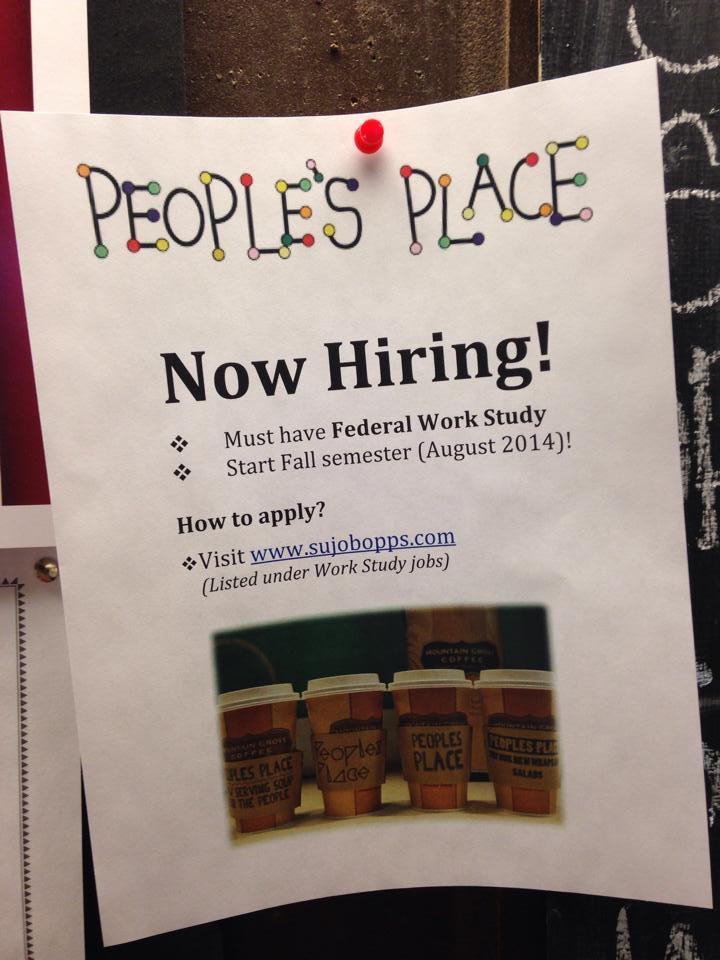 PEOPLE'S PLACE
Now Hiring!
❖ Must have Federal Work Study
❖ Start Fall semester (August 2014)!
How to apply?
❖Visit www.sujobopps.com
(Listed under Work Study jobs)
MOUNTAIN GROVE
COFFEE
COFFEE
PLES PLACE
SERVING SOUP
THE PEOPLE
PEOPLES
PLACE
PEOPLES
PLACE
PEOPLES PLA
NEW
SALADS